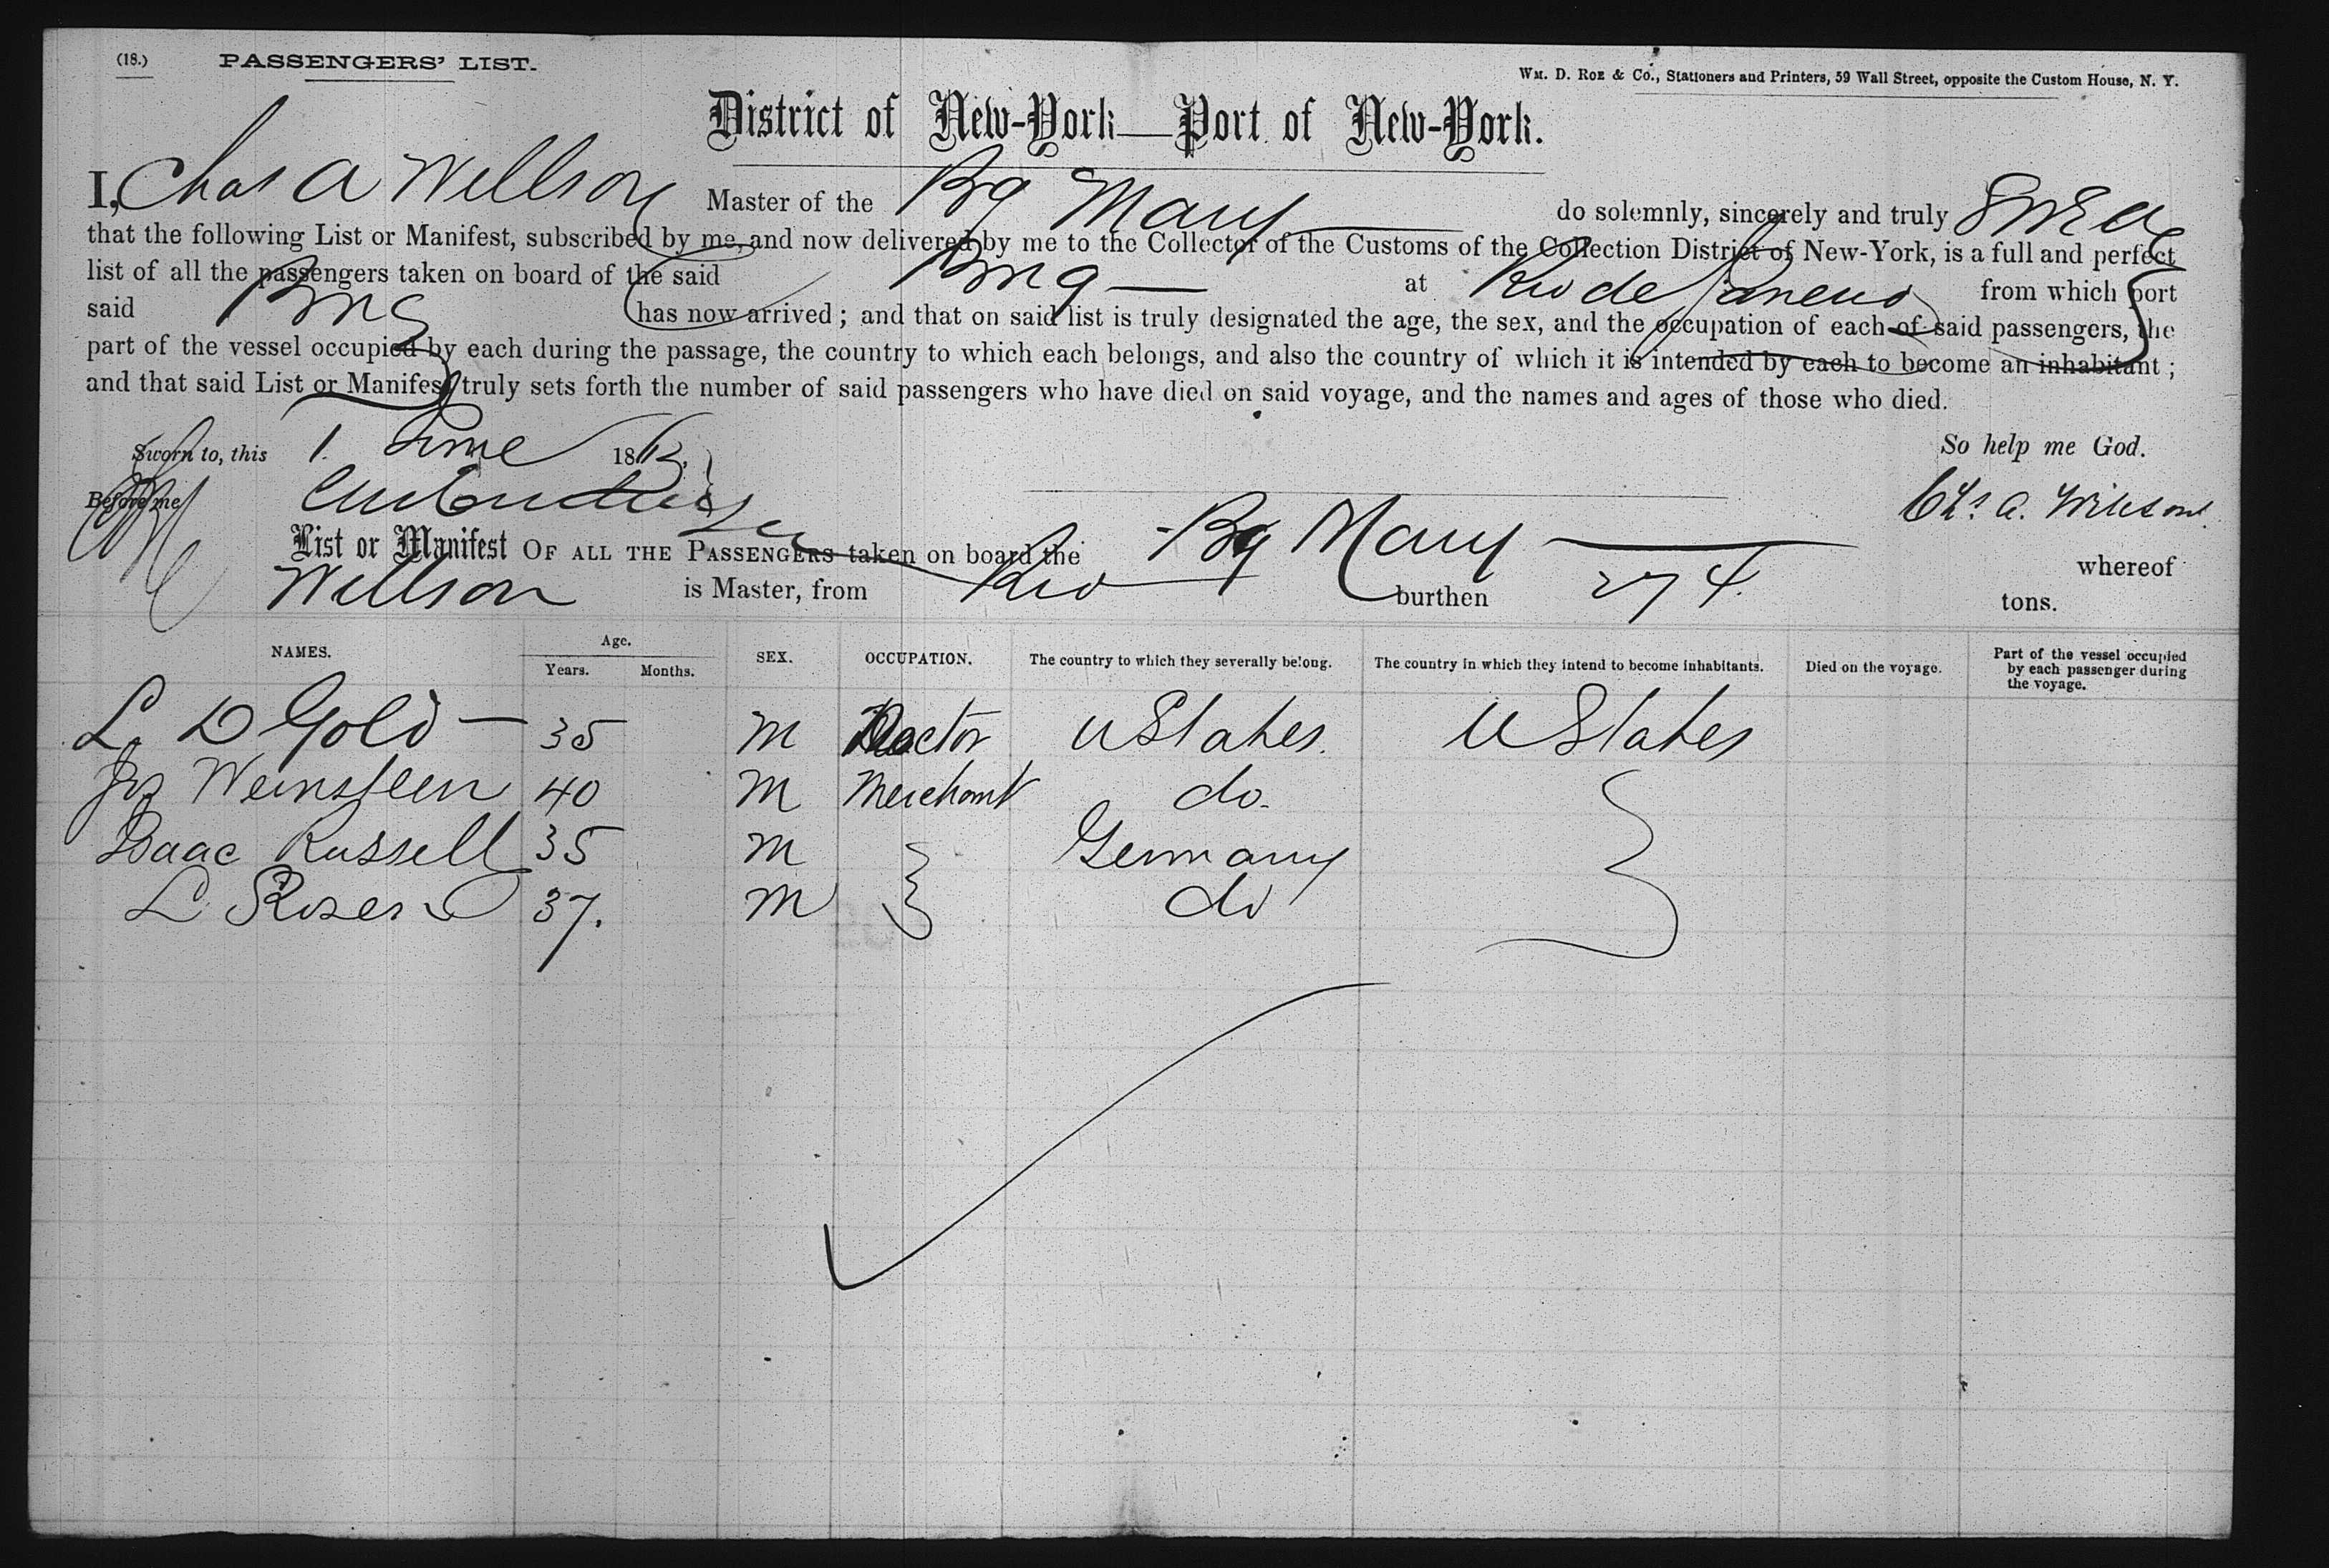 (18.) PASSENGERS' LIST.
WM. D. ROE & Co., Stationers and Printers, 59 Wall Street, opposite the Custom House, N. Y.
District of New-York—Port of New-York.
I, Chas A Willson Master of the Bg Mary do solemnly, sincerely and truly Swear
that the following List or Manifest, subscribed by me, and now delivered by me to the Collector of the Customs of the Collection District of New-York, is a full and perfect
list of all the passengers taken on board of the said Brig at Rio de Janeiro from which port
said Brig has now arrived; and that on said list is truly designated the age, the sex, and the occupation of each of said passengers, the
part of the vessel occupied by each during the passage, the country to which each belongs, and also the country of which it is intended by each to become an inhabitant;
and that said List or Manifest truly sets forth the number of said passengers who have died on said voyage, and the names and ages of those who died.
Sworn to, this 1. June 18 So help me God.
Before me Chs. A. Willson
List or Manifest OF ALL THE PASSENGERS taken on board the Bg Mary whereof
Willson is Master, from Rio burthen 274. tons.
NAMES. Age. Years. Months. SEX. OCCUPATION. The country to which they severally belong. The country in which they intend to become inhabitants. Died on the voyage. Part of the vessel occupied by each passenger during the voyage.
L. D Gold — 35 M Doctor U States. U States
Jos Weinsteen 40 M Merchant do.
Isaac Russell 35 M Germany
L Rosen 37. M do